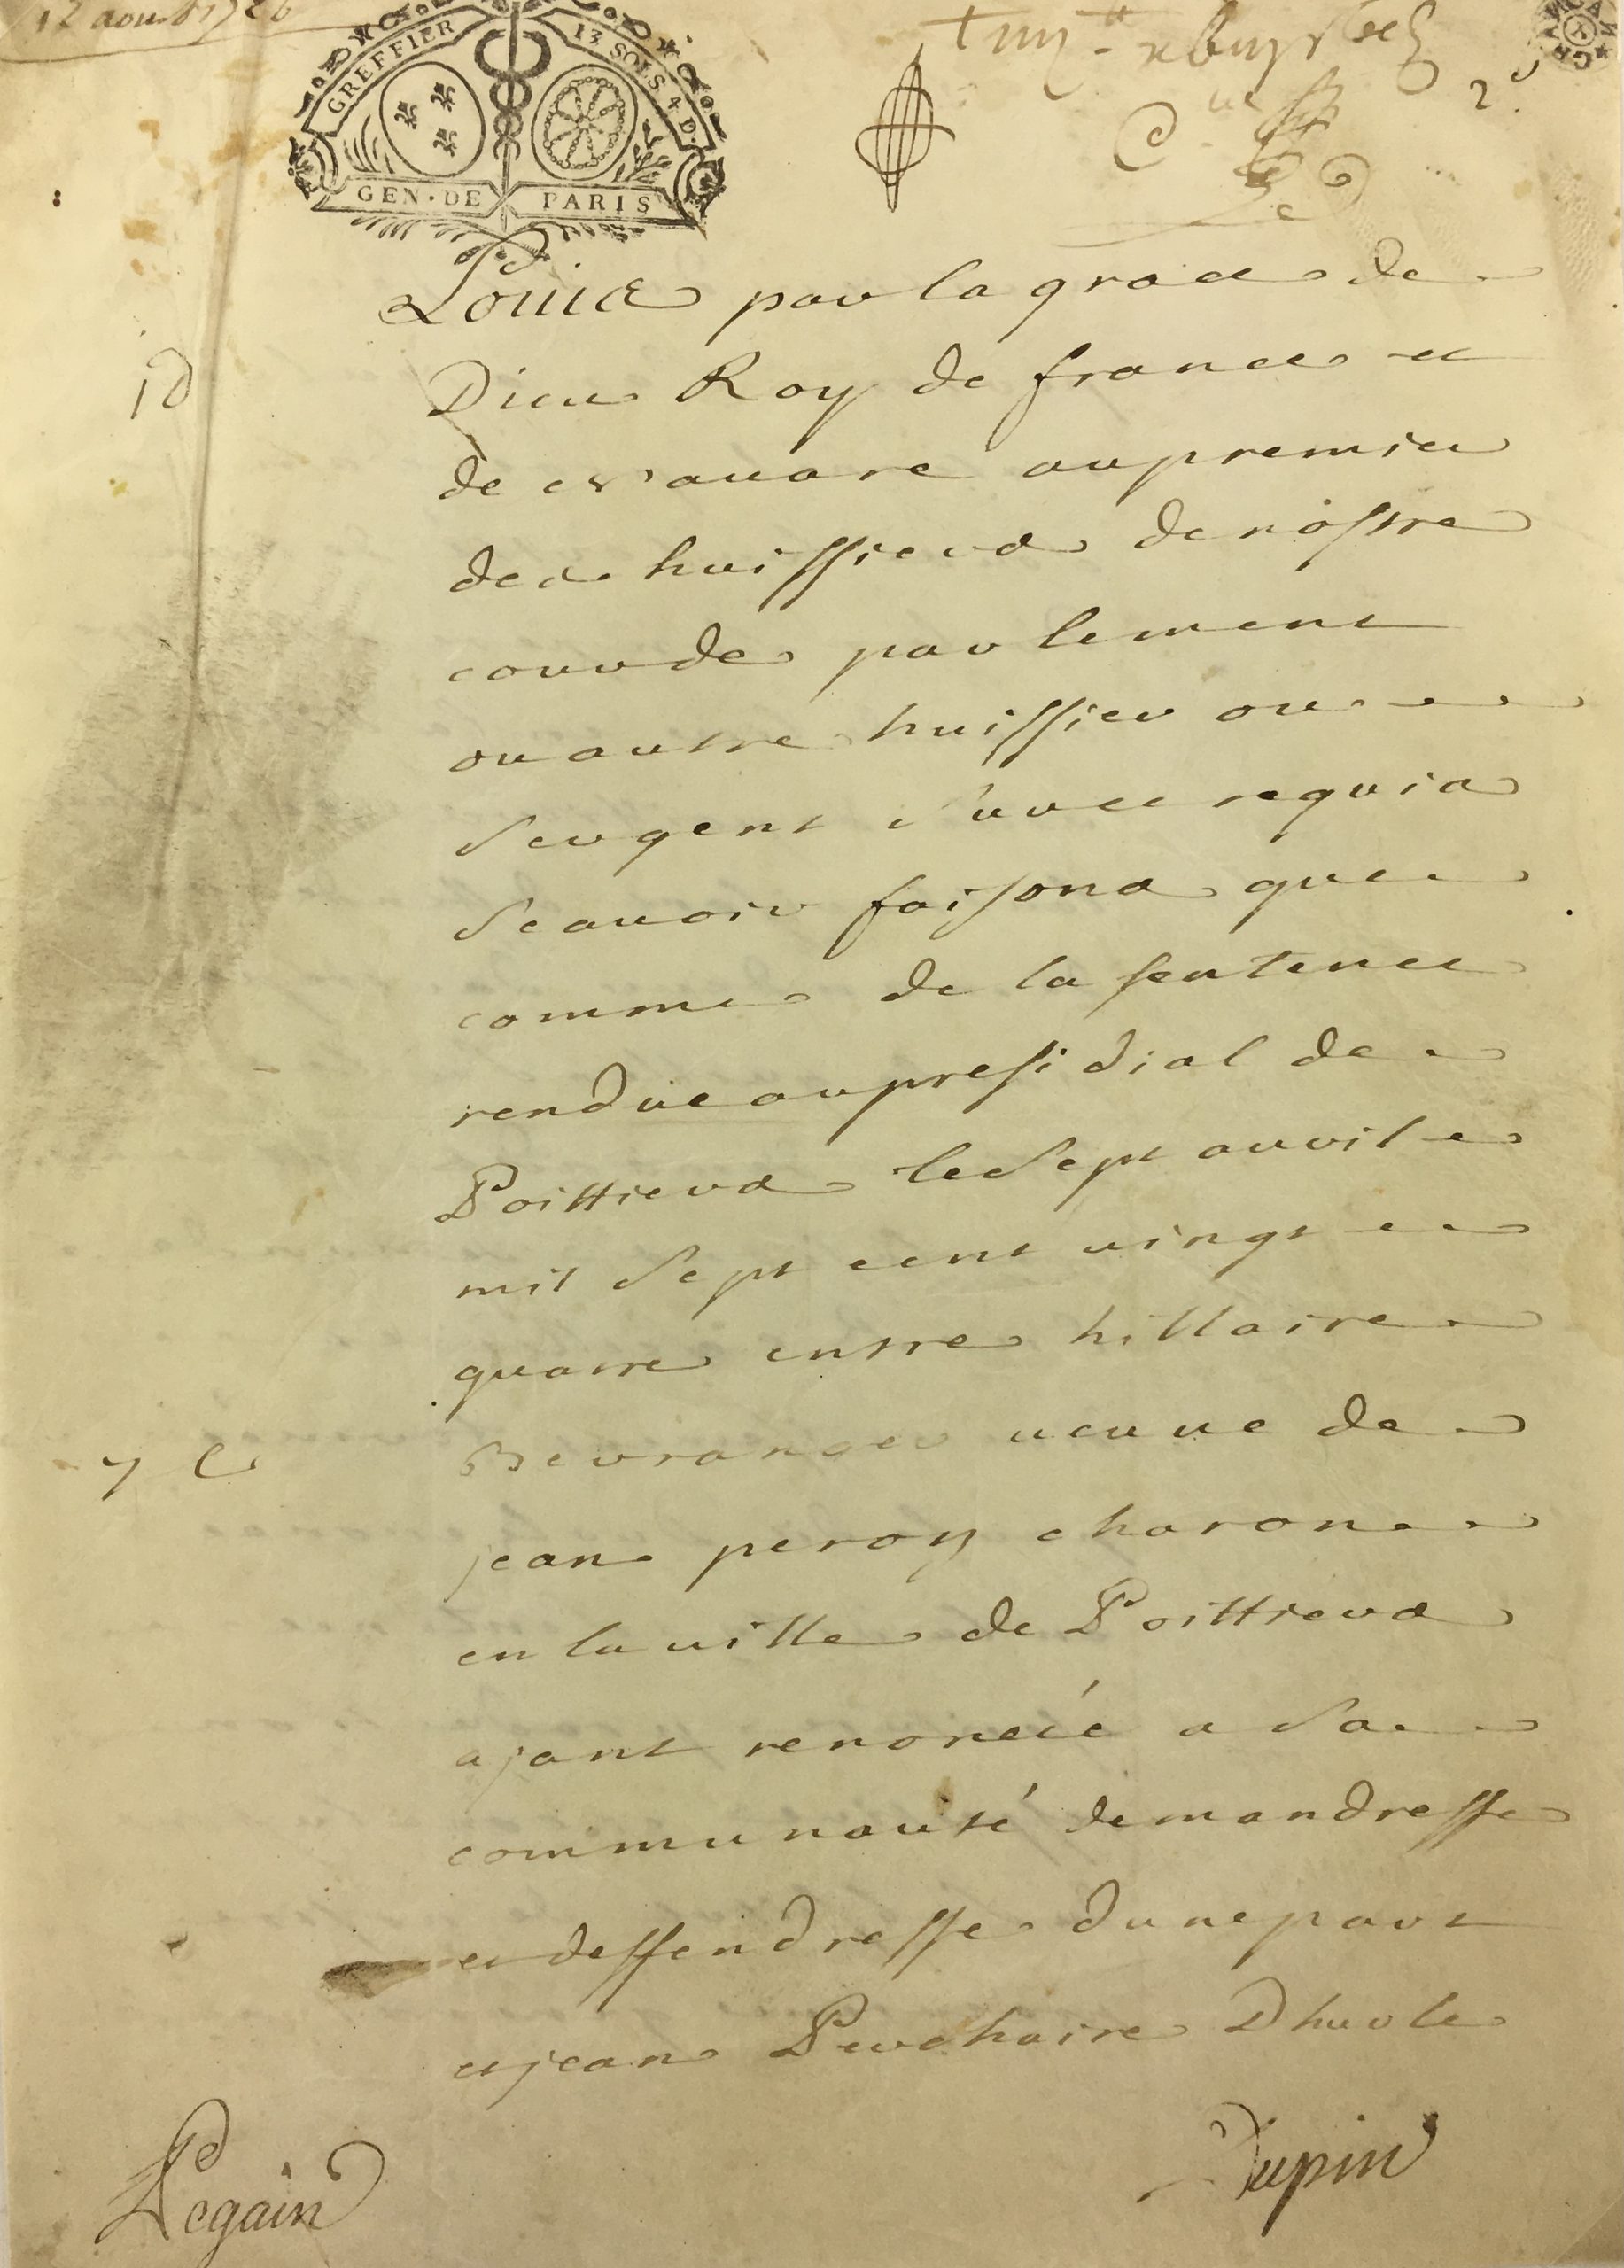 12 aoust 1726
GREFFIER 13 SOLS 4 D.
GEN · DE PARIS
Louis par la grace de
Dieu Roy de france et
de Navare au premier
des huissiers de nostre
cour de parlement
ou autre huissier ou
Sergent sur ce requis
Scavoir faisons que
comme de la sentence
rendue au presidial de
Poittiers le Sept avril
mil Sept cent vingt
quatre entre hillaire
veuve de
jean peron charon
en la ville de Poittiers
ajant renoncé a Sa
communauté demandresse
et deffendresse dune part
et jean
Legain
Dupin